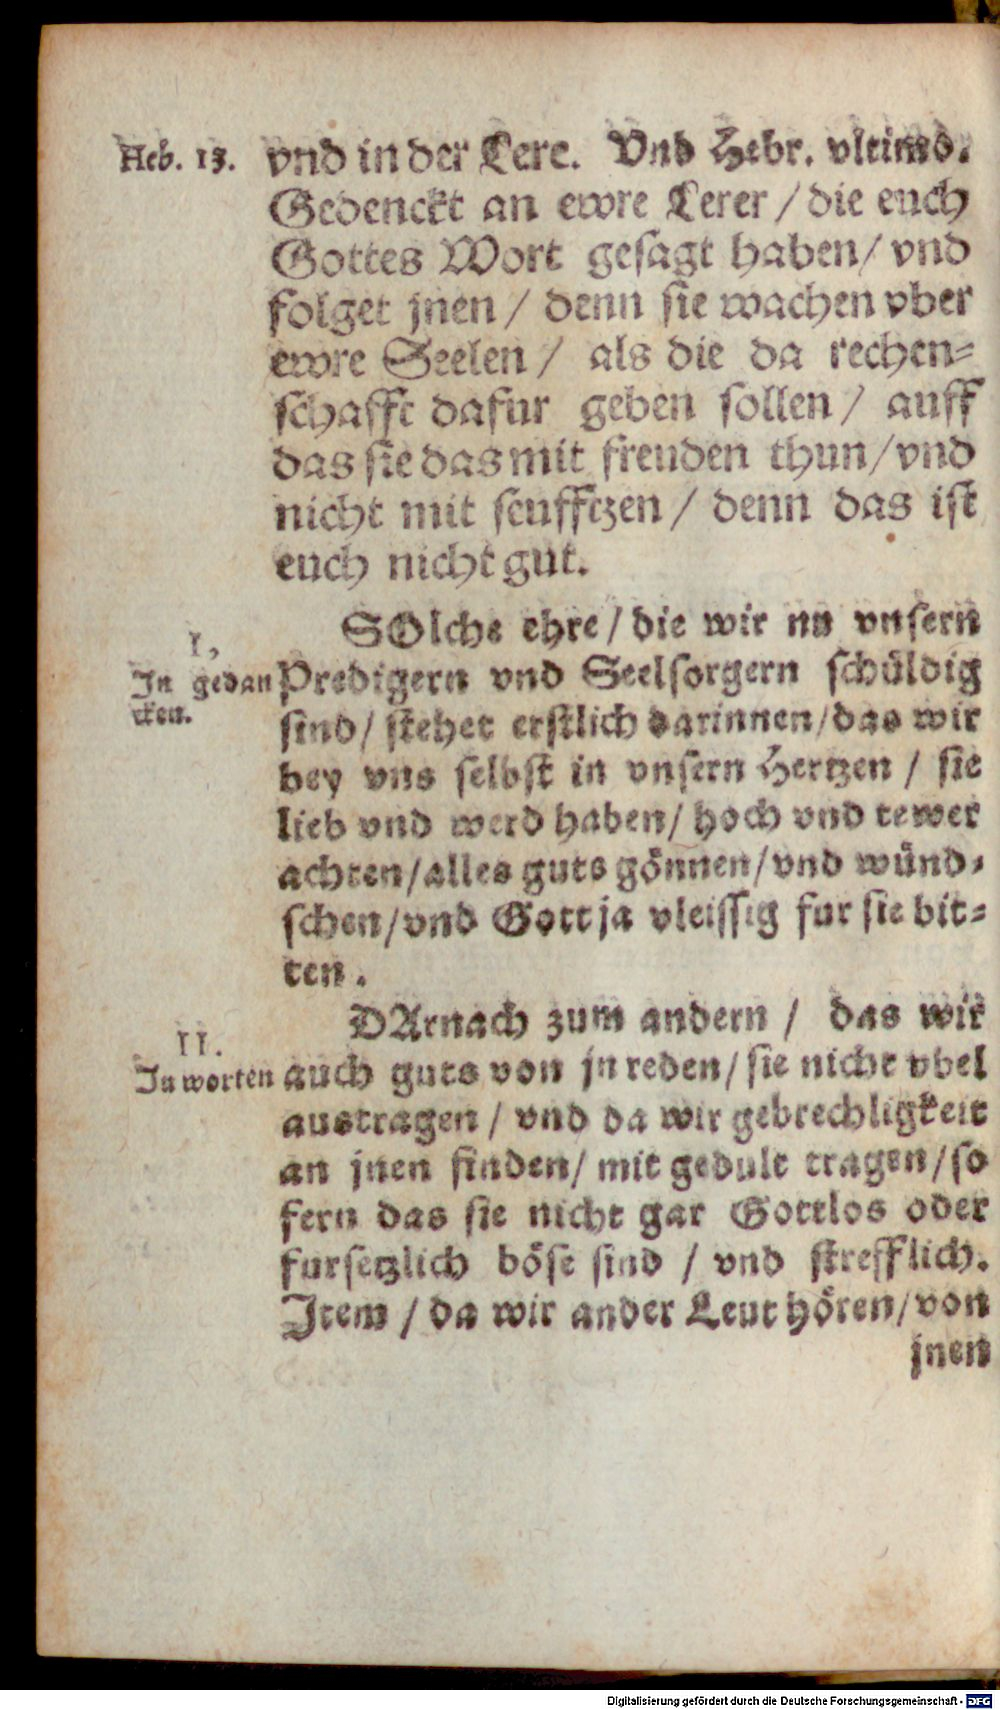 Heb. 13.
vnd in der Lere. Vnd Hebr. vltimo.
Gedenckt an ewre Lerer / die euch
Gottes Wort gesagt haben / vnd
folget jnen / denn sie wachen vber
ewre Seelen / als die da rechen=
schafft dafur geben sollen / auff
das sie das mit freuden thun / vnd
nicht mit seufftzen / denn das ist
euch nicht gut.
SOlche ehre / die wir nu vnsern
I,
In gedan
cken.
Predigern vnd Seelsorgern schüldig
sind / stehet erstlich darinnen / das wir
bey vns selbst in vnsern Hertzen / sie
lieb vnd werd haben / hoch vnd tewer
achten / alles guts gönnen / vnd wünd=
schen / vnd Gott ja vleissig fur sie bit=
ten.
DArnach zum andern / das wir
II.
In worten
auch guts von jn reden / sie nicht vbel
austragen / vnd da wir gebrechligkeit
an jnen finden / mit gedult tragen / so
fern das sie nicht gar Gottlos oder
fursetzlich böse sind / vnd strefflich.
Item / da wir ander Leut hören / von
jnen
Digitalisierung gefördert durch die Deutsche Forschungsgemeinschaft - DFG